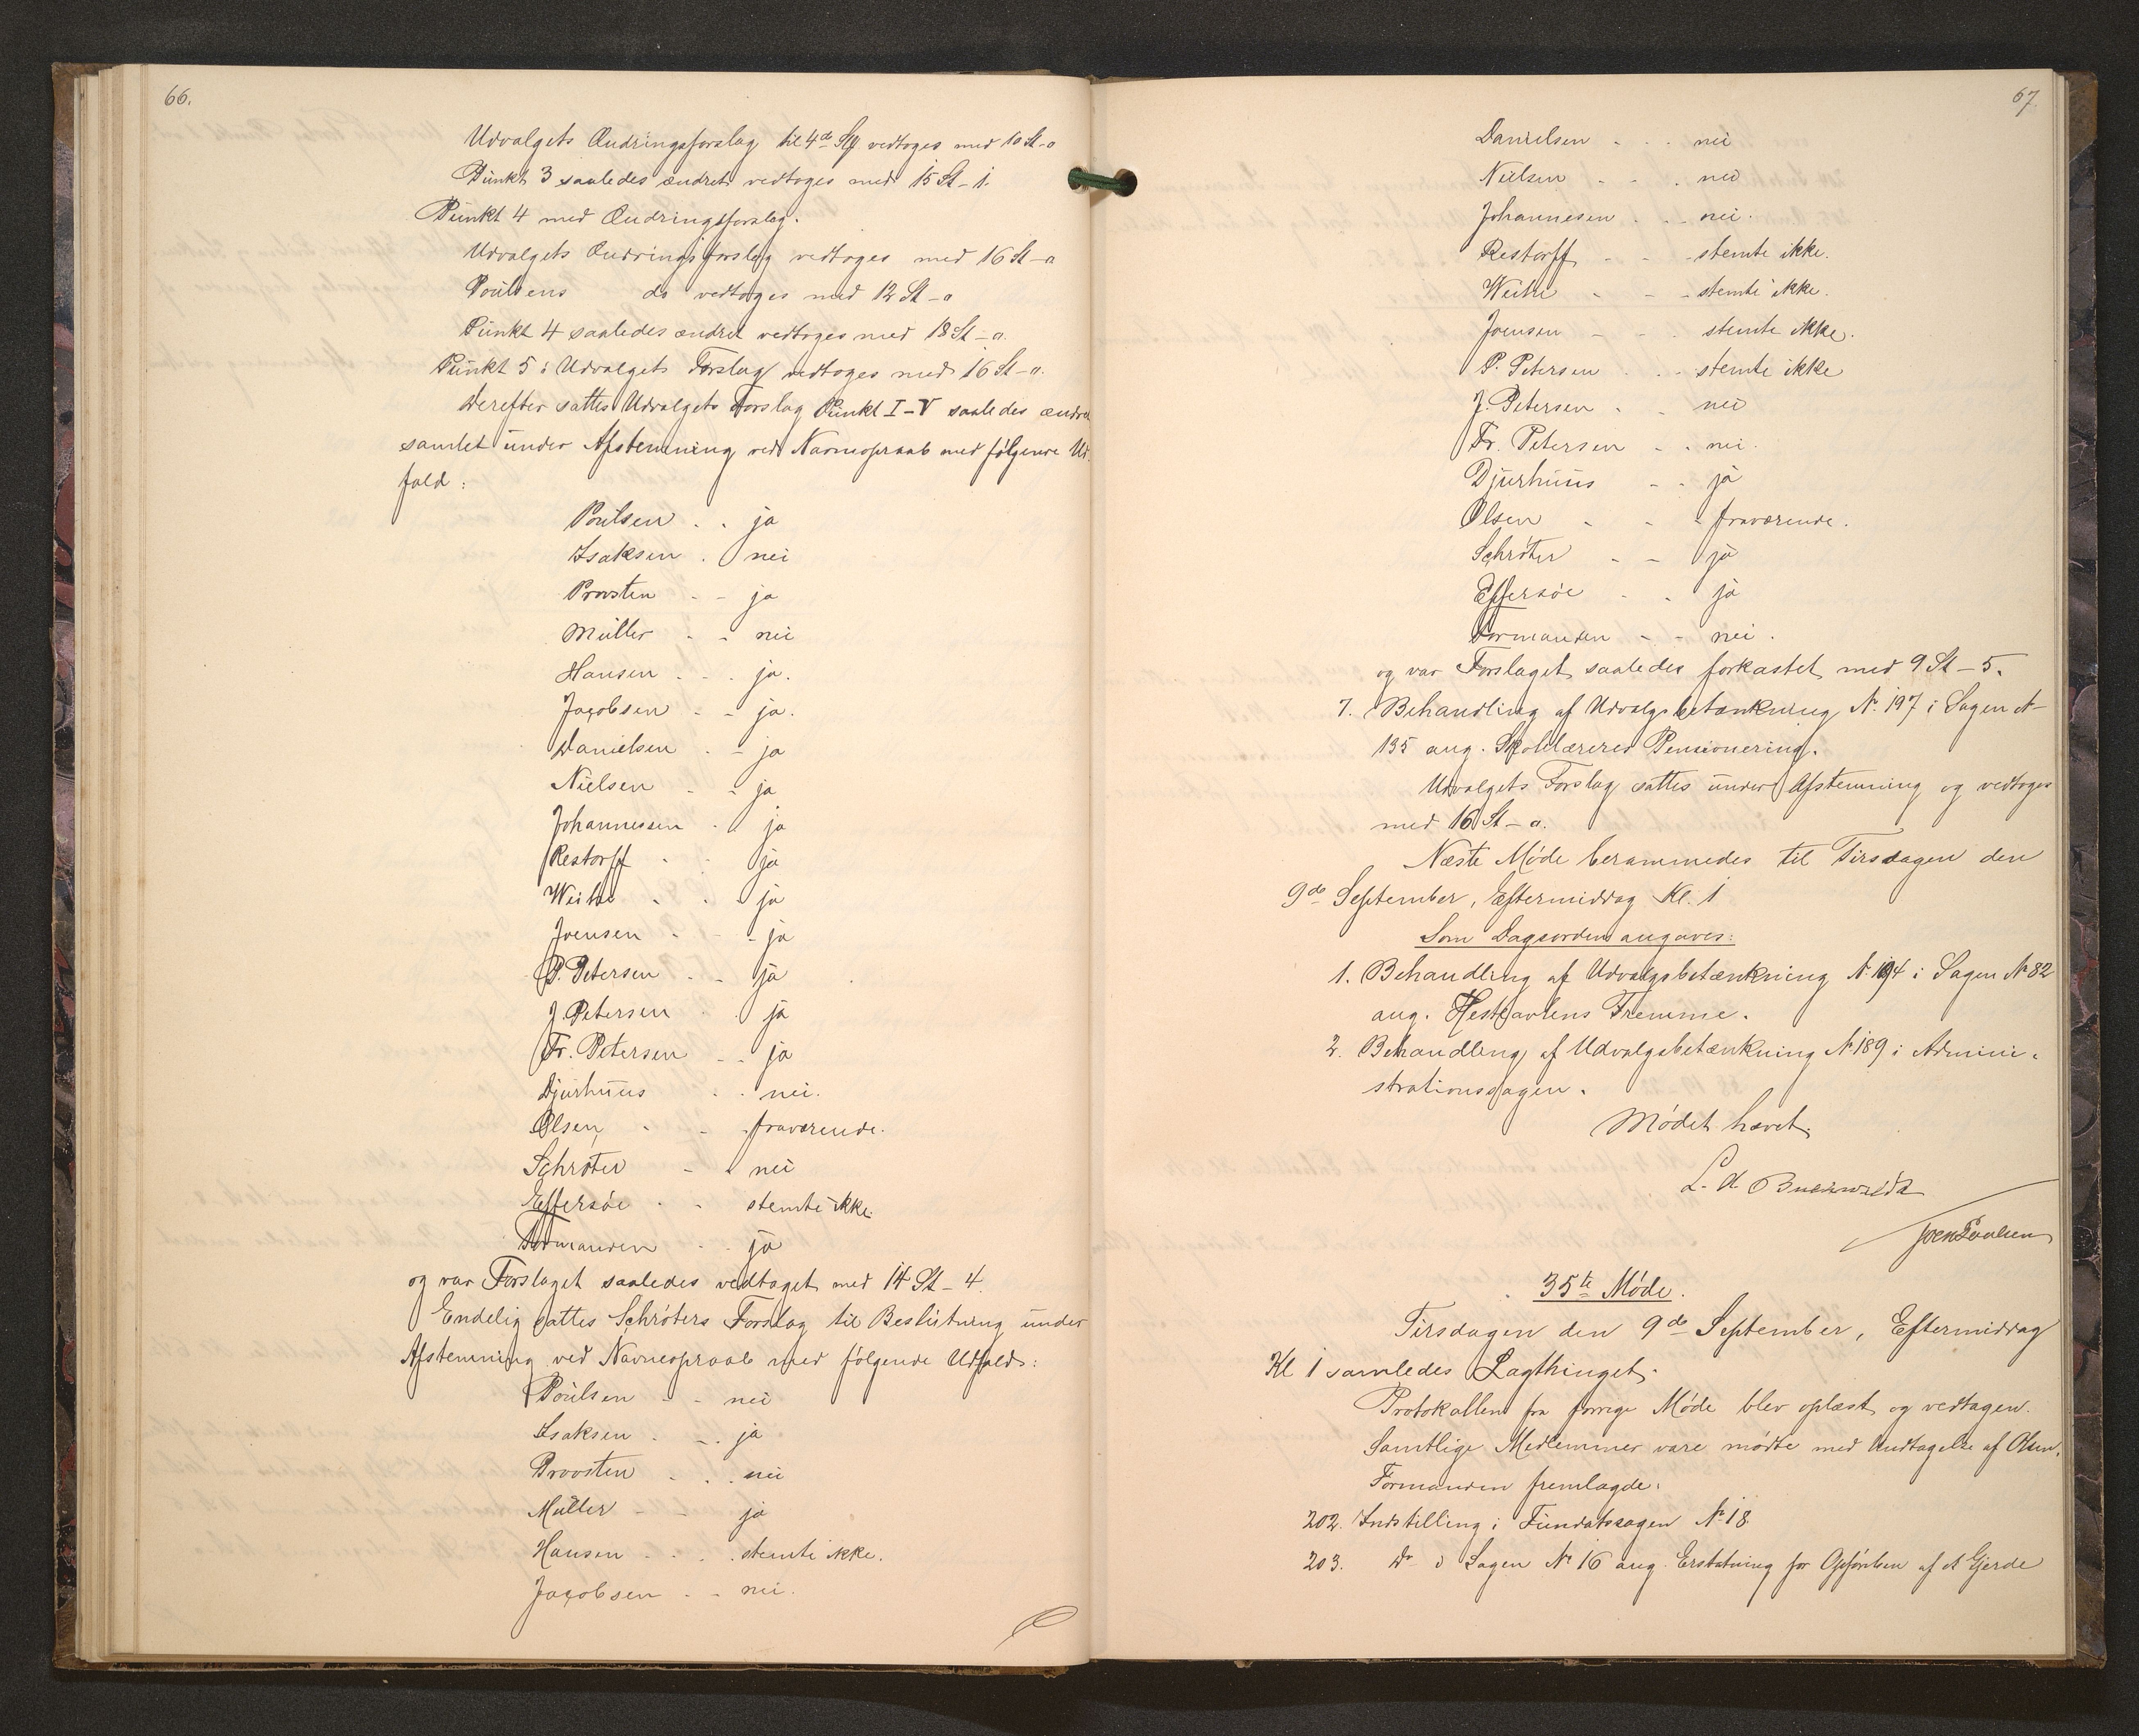 66.
Udvalgets Ændringsforslag til 4de Stk vedtoges med 10 St - o
Punkt 3 saaledes ændret vedtoges med 15 St - 1.
Punkt 4 med Ændringsforslag.
Udvalgets Ændringsforslag vedtoges med 16 St - o
Poulsens do vedtoges med 12 St - o
Punkt 4 saaledes ændret vedtoges med 18 St - o.
Punkt 5: Udvalgets Forslag vedtoges med 16 St - o.
Derefter sattes Udvalgets Forslag Punkt I - V saaledes ændret
samlet under Afstemning ved Navneopraab med følgende Ud-
fald:
Poulsen - - ja
Isaksen - nei
Provsten - - ja
Müller - - nei
Hansen - - ja.
Jacobsen - - ja.
Danielsen - - ja
Nielsen - - ja
Johannesen - - ja
Restorff - - ja
Weihe - - ja
Joensen - - ja
P. Petersen - - ja
J. Petersen - - ja
Fr. Petersen - - ja
Djurhuus - - nei.
Olsen - - fraværende.
Schrøter - - nei
Effersøe - - stemte ikke.
Formanden - - ja
og var Forslaget saaledes vedtaget med 14 St - 4.
Endelig sattes Schrøters Forslag til Beslutning under
Afstemning ved Navneopraab med følgende Udfald:
Poulsen - - nei
Isaksen - - ja
Provsten - - nei
Müller - - ja
Hansen - - stemte ikke.
Jacobsen - - nei.
67.
Danielsen - - nei
Nielsen - - nei
Johannesen - - nei.
Restorff - - stemte ikke.
Weihe - - stemte ikke.
Joensen - - stemte ikke.
P. Petersen - - stemte ikke
J. Petersen - - nei
Fr. Petersen - - nei.
Djurhuus - - ja
Olsen - - fraværende.
Schrøter - - ja
Effersøe - - ja
Formanden - - nei.
og var Forslaget saaledes forkastet med 9 St - 5.
7. Behandling af Udvalgsbetænkning No 197 i Sagen No
135 ang. Skolelæreres Pensionering.
Udvalgets Forslag sattes under Afstemning og vedtoges
med 16 St - o.
Næste Møde berammedes til Tirsdagen den
9de September, Eftermiddag Kl. 1
Som Dagsorden angaves:
1. Behandling af Udvalgsbetænkning No 194 i Sagen No 82
ang. Hesteavlens Fremme.
2. Behandling af Udvalgsbetænkning No 189 i Admini-
strationssagen.
Mødet hævet.
L. A. Buchwaldt
Joen Poulsen
35te Møde.
Tirsdagen den 9de September, Eftermiddag
Kl 1 samledes Lagthinget.
Protokollen fra forrige Møde blev oplæst og vedtagen.
Samtlige Medlemmer vare mødte med Undtagelse af Olsen.
Formanden fremlagde:
202. Indstilling i Fundatssagen No 18.
203. Do i Sagen No 16 ang. Erstatning for Opførelsen af et Gjerde